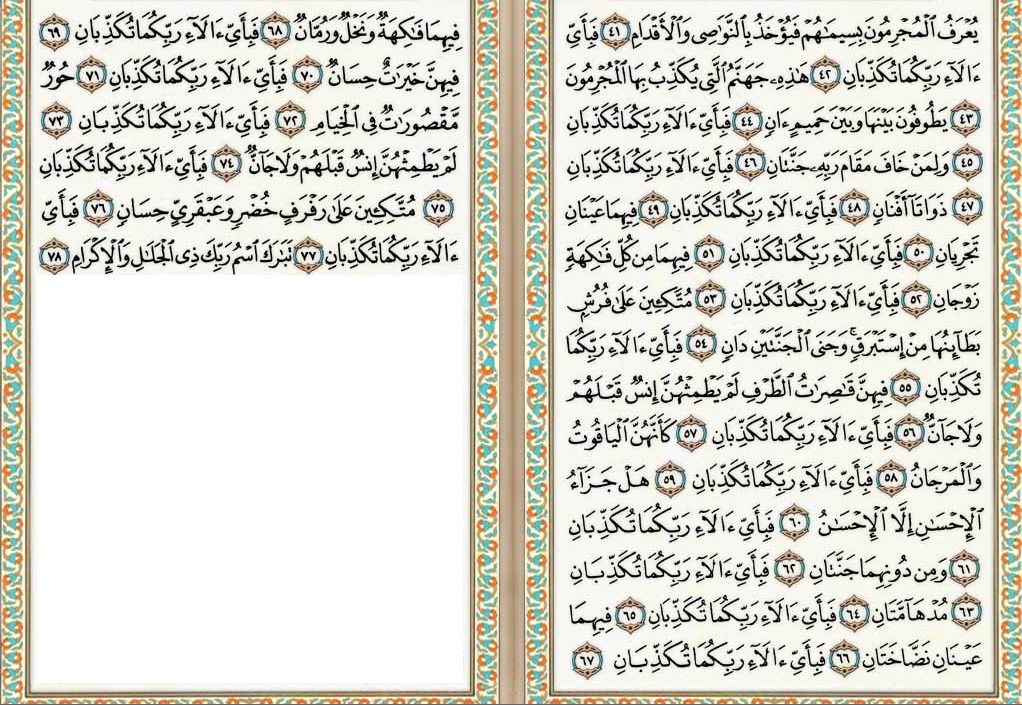 يُعْرَفُ ٱلْمُجْرِمُونَ بِسِيمَٰهُمْ فَيُؤْخَذُ بِٱلنَّوَٰصِى وَٱلْأَقْدَامِ ٤١ فَبِأَىِّ
ءَالَآءِ رَبِّكُمَا تُكَذِّبَانِ ٤٢ هَٰذِهِۦ جَهَنَّمُ ٱلَّتِى يُكَذِّبُ بِهَا ٱلْمُجْرِمُونَ
٤٣ يَطُوفُونَ بَيْنَهَا وَبَيْنَ حَمِيمٍ ءَانٍ ٤٤ فَبِأَىِّ ءَالَآءِ رَبِّكُمَا تُكَذِّبَانِ
٤٥ وَلِمَنْ خَافَ مَقَامَ رَبِّهِۦ جَنَّتَانِ ٤٦ فَبِأَىِّ ءَالَآءِ رَبِّكُمَا تُكَذِّبَانِ
٤٧ ذَوَاتَآ أَفْنَانٍ ٤٨ فَبِأَىِّ ءَالَآءِ رَبِّكُمَا تُكَذِّبَانِ ٤٩ فِيهِمَا عَيْنَانِ
تَجْرِيَانِ ٥٠ فَبِأَىِّ ءَالَآءِ رَبِّكُمَا تُكَذِّبَانِ ٥١ فِيهِمَا مِن كُلِّ فَٰكِهَةٍ
زَوْجَانِ ٥٢ فَبِأَىِّ ءَالَآءِ رَبِّكُمَا تُكَذِّبَانِ ٥٣ مُتَّكِـِٔينَ عَلَىٰ فُرُشٍۭ
بَطَآئِنُهَا مِنْ إِسْتَبْرَقٍۢ ۚ وَجَنَى ٱلْجَنَّتَيْنِ دَانٍ ٥٤ فَبِأَىِّ ءَالَآءِ رَبِّكُمَا
تُكَذِّبَانِ ٥٥ فِيهِنَّ قَٰصِرَٰتُ ٱلطَّرْفِ لَمْ يَطْمِثْهُنَّ إِنسٌ قَبْلَهُمْ
وَلَا جَآنٌّ ٥٦ فَبِأَىِّ ءَالَآءِ رَبِّكُمَا تُكَذِّبَانِ ٥٧ كَأَنَّهُنَّ ٱلْيَاقُوتُ
وَٱلْمَرْجَانُ ٥٨ فَبِأَىِّ ءَالَآءِ رَبِّكُمَا تُكَذِّبَانِ ٥٩ هَلْ جَزَآءُ
ٱلْإِحْسَٰنِ إِلَّا ٱلْإِحْسَٰنُ ٦٠ فَبِأَىِّ ءَالَآءِ رَبِّكُمَا تُكَذِّبَانِ
٦١ وَمِن دُونِهِمَا جَنَّتَانِ ٦٢ فَبِأَىِّ ءَالَآءِ رَبِّكُمَا تُكَذِّبَانِ
٦٣ مُدْهَآمَّتَانِ ٦٤ فَبِأَىِّ ءَالَآءِ رَبِّكُمَا تُكَذِّبَانِ ٦٥ فِيهِمَا
عَيْنَانِ نَضَّاخَتَانِ ٦٦ فَبِأَىِّ ءَالَآءِ رَبِّكُمَا تُكَذِّبَانِ ٦٧
فِيهِمَا فَٰكِهَةٌ وَنَخْلٌ وَرُمَّانٌ ٦٨ فَبِأَىِّ ءَالَآءِ رَبِّكُمَا تُكَذِّبَانِ ٦٩
فِيهِنَّ خَيْرَٰتٌ حِسَانٌ ٧٠ فَبِأَىِّ ءَالَآءِ رَبِّكُمَا تُكَذِّبَانِ ٧١ حُورٌ
مَّقْصُورَٰتٌ فِى ٱلْخِيَامِ ٧٢ فَبِأَىِّ ءَالَآءِ رَبِّكُمَا تُكَذِّبَانِ ٧٣
لَمْ يَطْمِثْهُنَّ إِنسٌ قَبْلَهُمْ وَلَا جَآنٌّ ٧٤ فَبِأَىِّ ءَالَآءِ رَبِّكُمَا تُكَذِّبَانِ
٧٥ مُتَّكِـِٔينَ عَلَىٰ رَفْرَفٍ خُضْرٍ وَعَبْقَرِىٍّ حِسَانٍ ٧٦ فَبِأَىِّ
ءَالَآءِ رَبِّكُمَا تُكَذِّبَانِ ٧٧ تَبَٰرَكَ ٱسْمُ رَبِّكَ ذِى ٱلْجَلَٰلِ وَٱلْإِكْرَامِ ٧٨